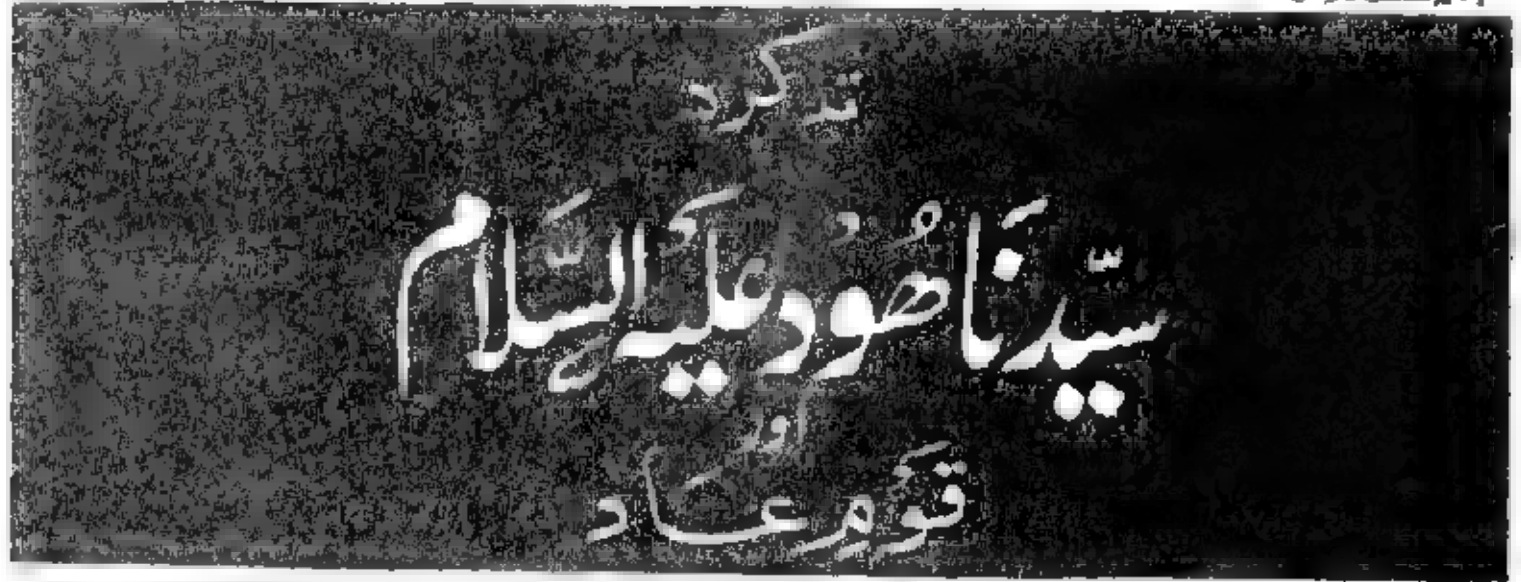 تذکرہ
سَیِّدنَا ھُوْد عَلَیہِ السَّلَام
اور
قَوم عاد